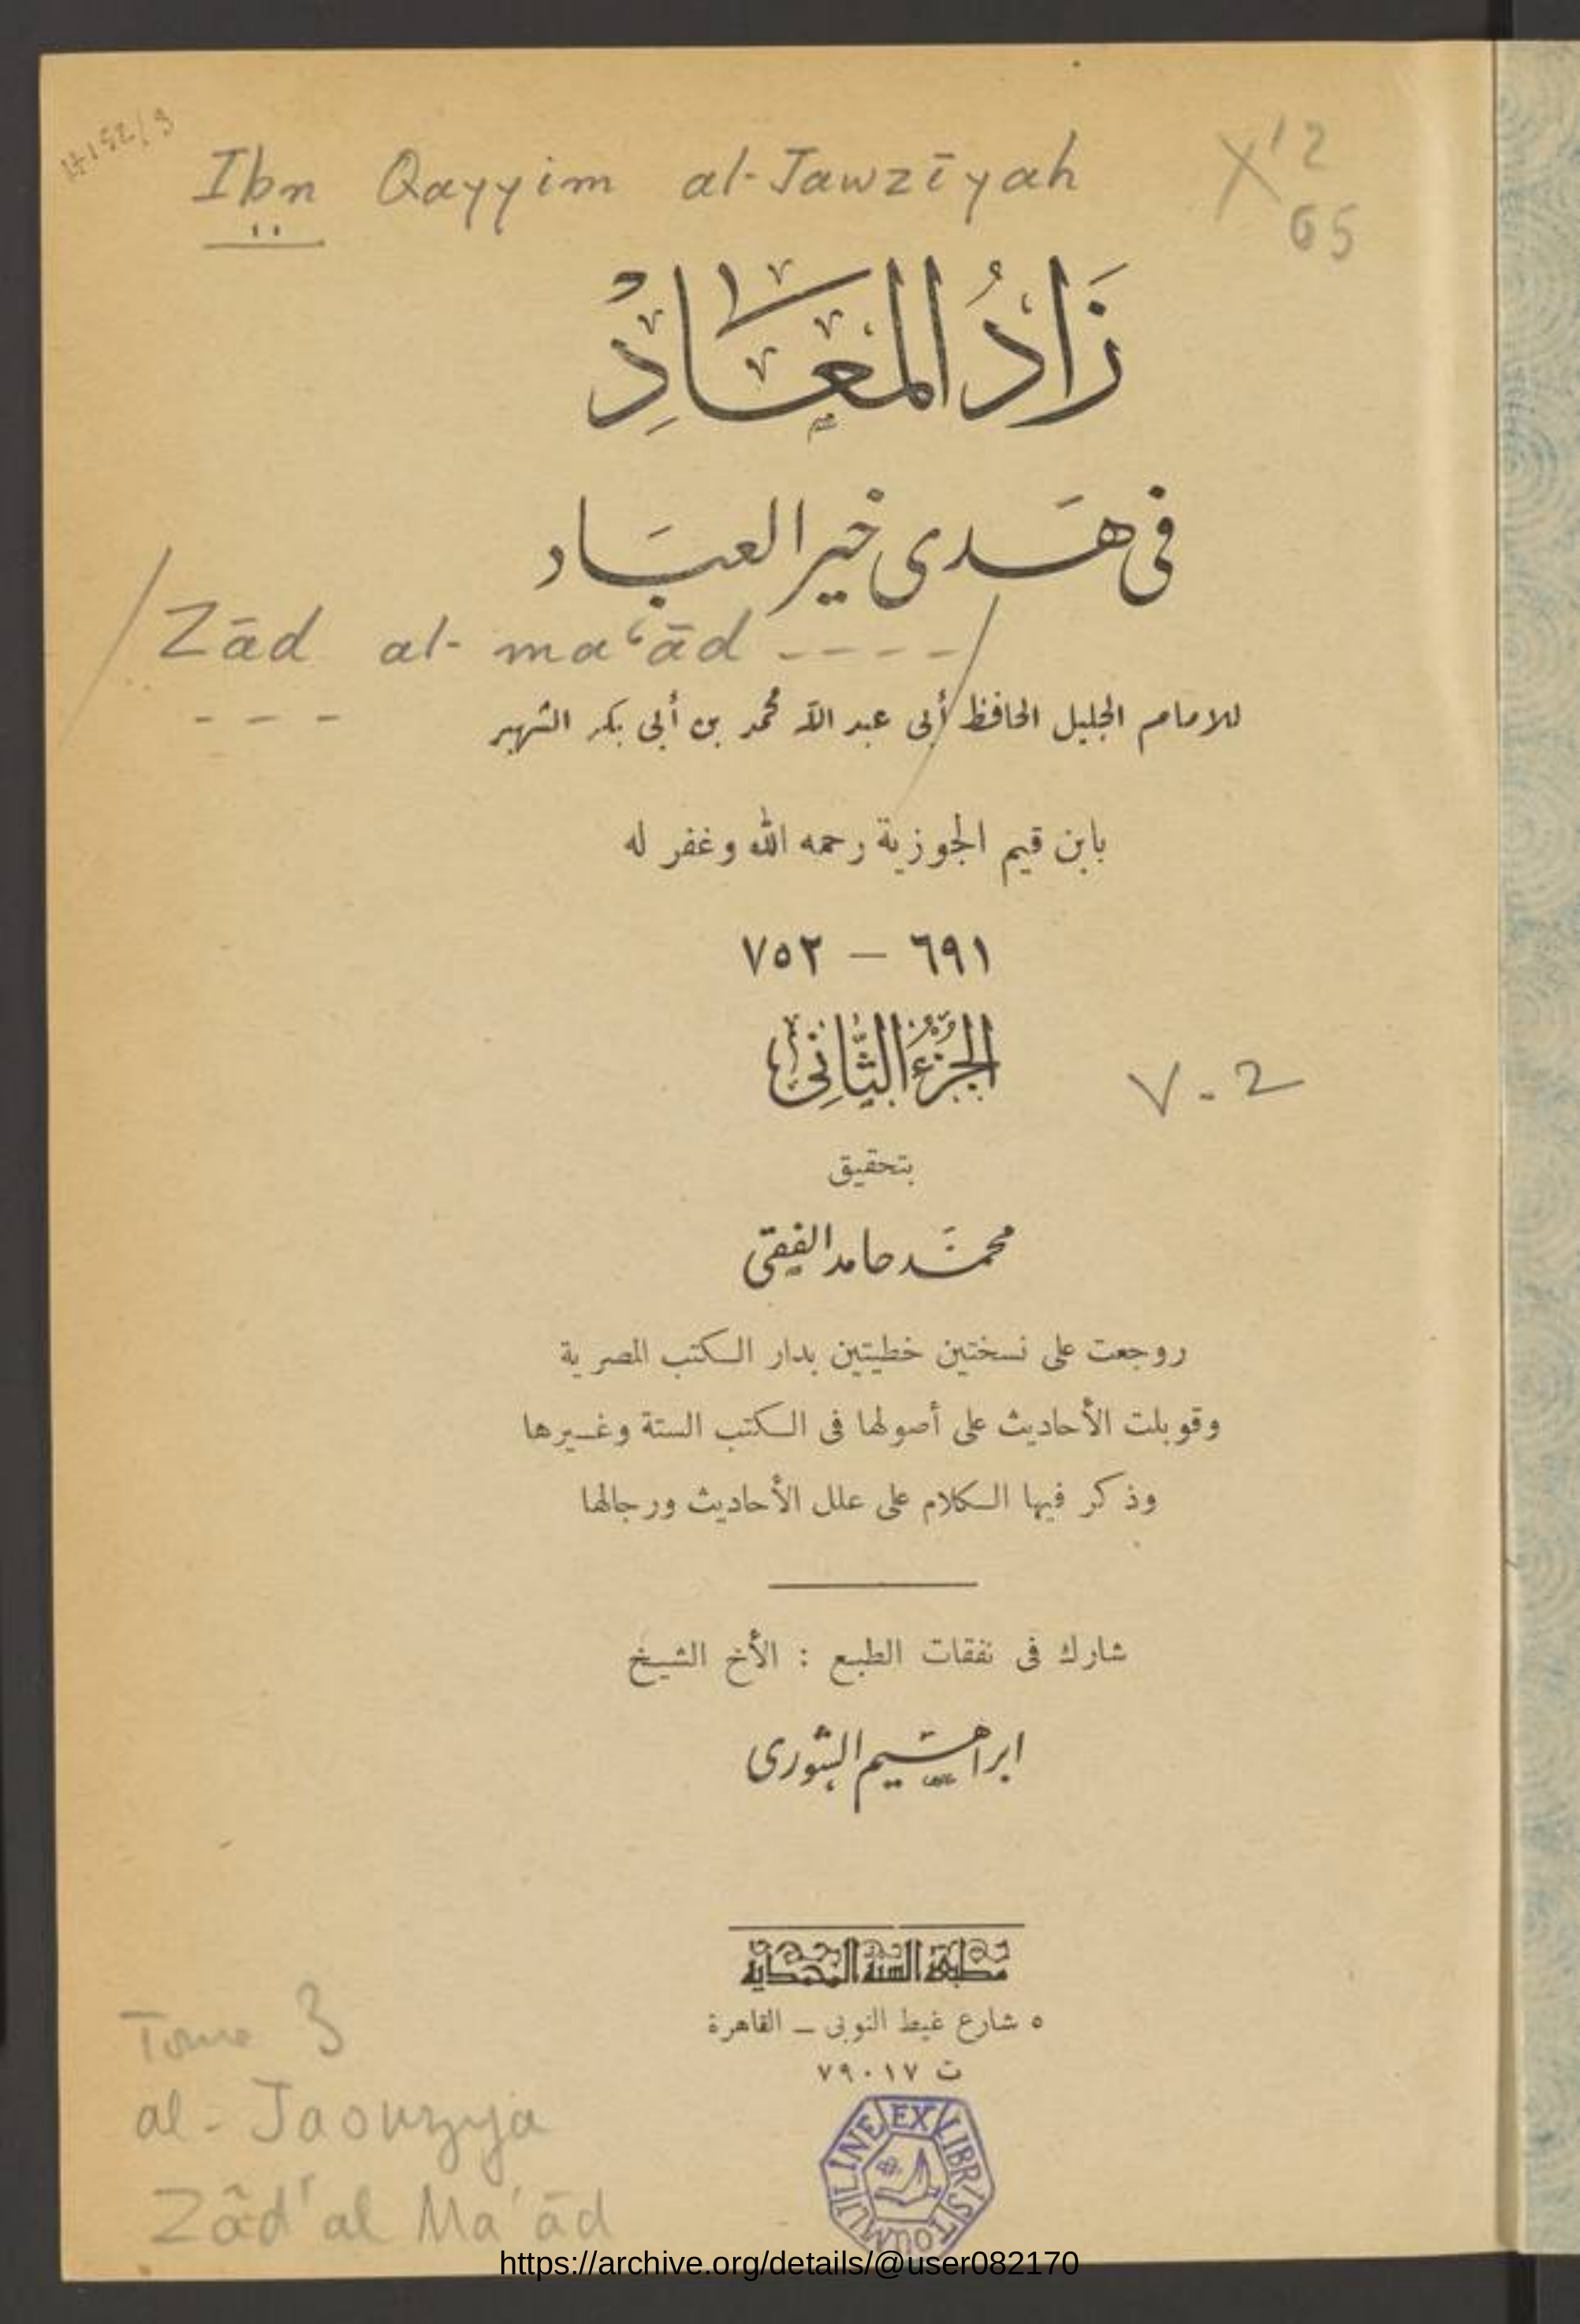 Ibn Qayyim al-Jawzīyah
X12
65
زَادُ المَعَادِ
فى هَدى خير العبَاد
Zād al-ma‘ād ----
للامام الجليل الحافظ أبى عبد الله محمد بن أبى بكر الشهير
بابن قيم الجوزية رحمه الله وغفر له
٦٩١ — ٧٥٢
الجُزْءُ الثَّانِى
V-2
بتحقيق
محمَّد حامد الفقى
روجعت على نسختين خطيتين بدار الكتب المصرية
وقوبلت الأحاديث على أصولها فى الكتب الستة وغيرها
وذكر فيها الكلام على علل الأحاديث ورجالها
شارك فى نفقات الطبع : الأخ الشيخ
ابراهيم الشورى
مطبعة السنة المحمدية
٥ شارع غيط النوبى – القاهرة
ت ٧٩٠١٧
Tome 3
al-Jaouzyja
Zâd' al Ma'ād
EX LIBRIS TOUMLILINE
https://archive.org/details/@user082170